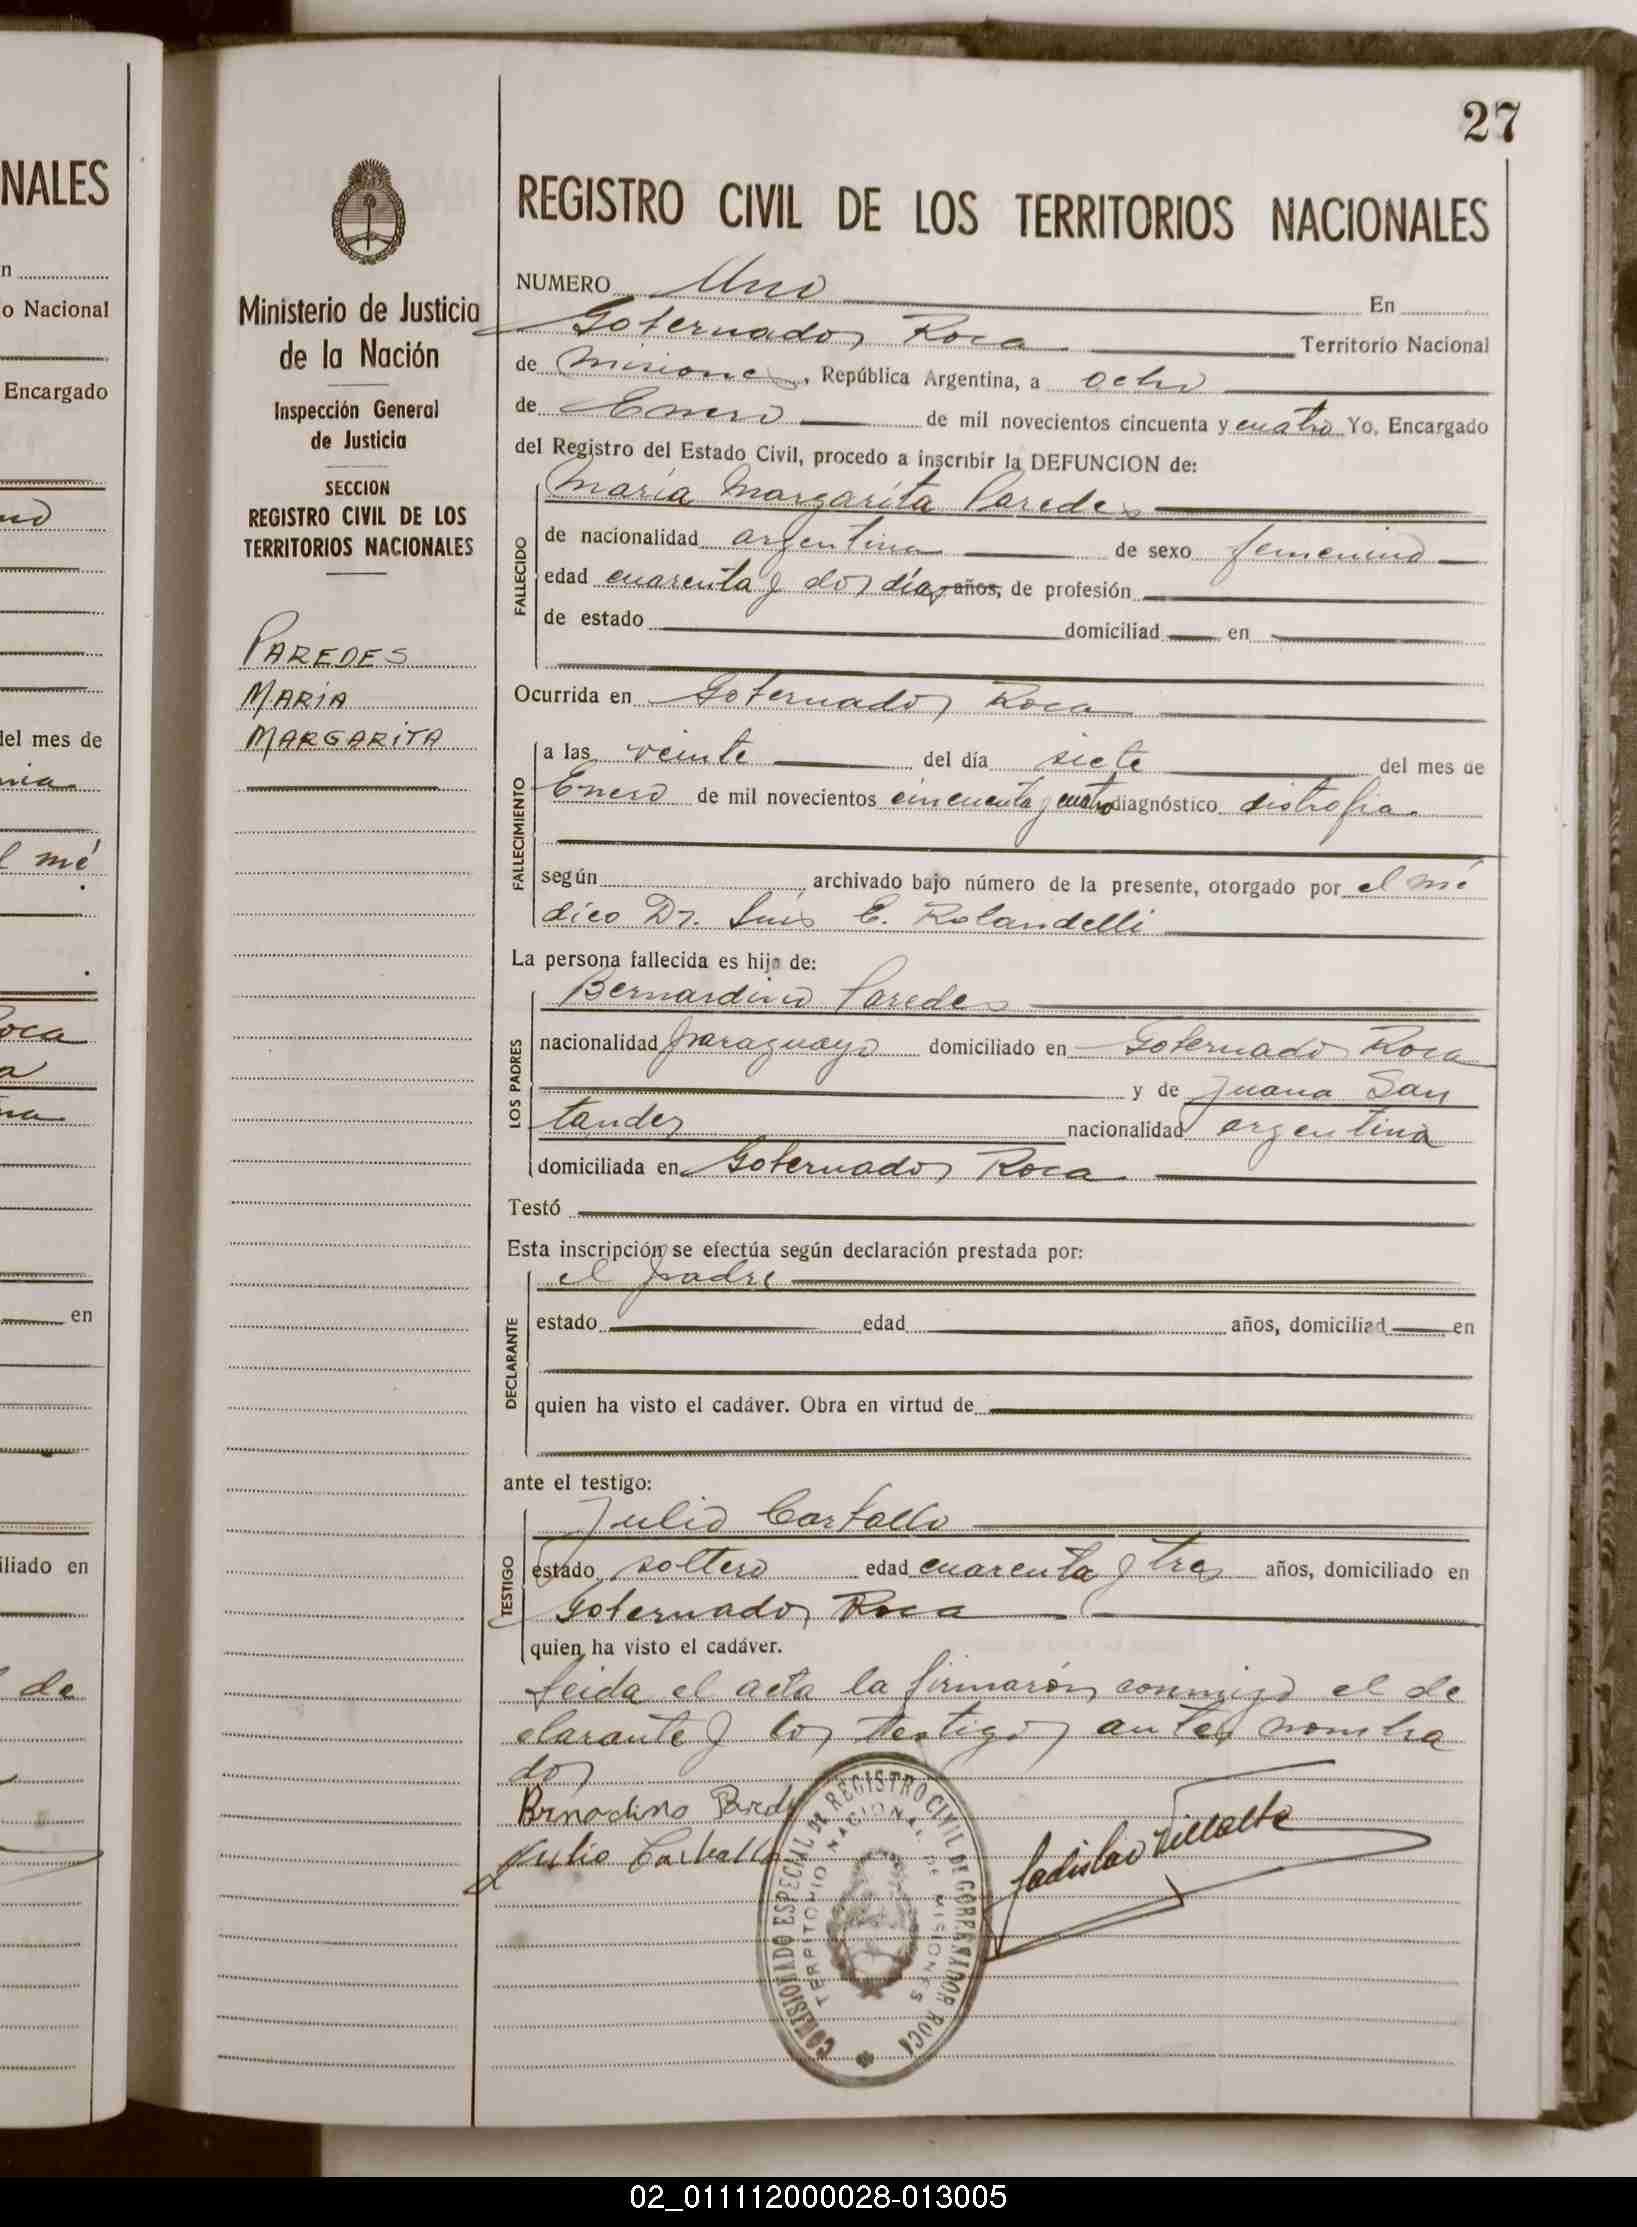 NALES
n
o Nacional
Encargado
del mes de
l mé
oca
a
en
iliado en
de
27
Ministerio de Justicia
de la Nación
Inspección General
de Justicia
SECCION
REGISTRO CIVIL DE LOS
TERRITORIOS NACIONALES
PAREDES
MARÍA
MARGARITA
REGISTRO CIVIL DE LOS TERRITORIOS NACIONALES
NUMERO Uno En
Gobernador Roca Territorio Nacional
de Misiones, República Argentina, a ocho
de Enero de mil novecientos cincuenta y cuatro Yo, Encargado
del Registro del Estado Civil, procedo a inscribir la DEFUNCION de:
María Margarita Paredes
FALLECIDO
de nacionalidad argentina de sexo femenino
edad cuarenta y dos días años, de profesión
de estado domiciliad en
Ocurrida en Gobernador Roca
FALLECIMIENTO
a las veinte del día siete del mes de
Enero de mil novecientos cincuenta y cuatro diagnóstico distrofia
según archivado bajo número de la presente, otorgado por el mé
dico Dr. Luis E. Rolandelli
La persona fallecida es hija de:
LOS PADRES
Bernardino Paredes
nacionalidad paraguayo domiciliado en Gobernador Roca
y de Juana San
tander nacionalidad argentina
domiciliada en Gobernador Roca
Testó
Esta inscripción se efectúa según declaración prestada por:
DECLARANTE
el padre
estado edad años, domiciliad en
quien ha visto el cadáver. Obra en virtud de
ante el testigo:
TESTIGO
Julio Carballo
estado soltero edad cuarenta y tres años, domiciliado en
Gobernador Roca
quien ha visto el cadáver.
Leida el acta la firmarón conmigo el de
clarante y los testigos antes nombra
dos
Brnodino Pared
Julio Carballo
Ladislao Villalba
COMISIONADO ESPECIAL DE REGISTRO CIVIL DE GOBERNADOR ROCA
TERRITORIO NACIONAL DE MISIONES
02_011112000028-013005